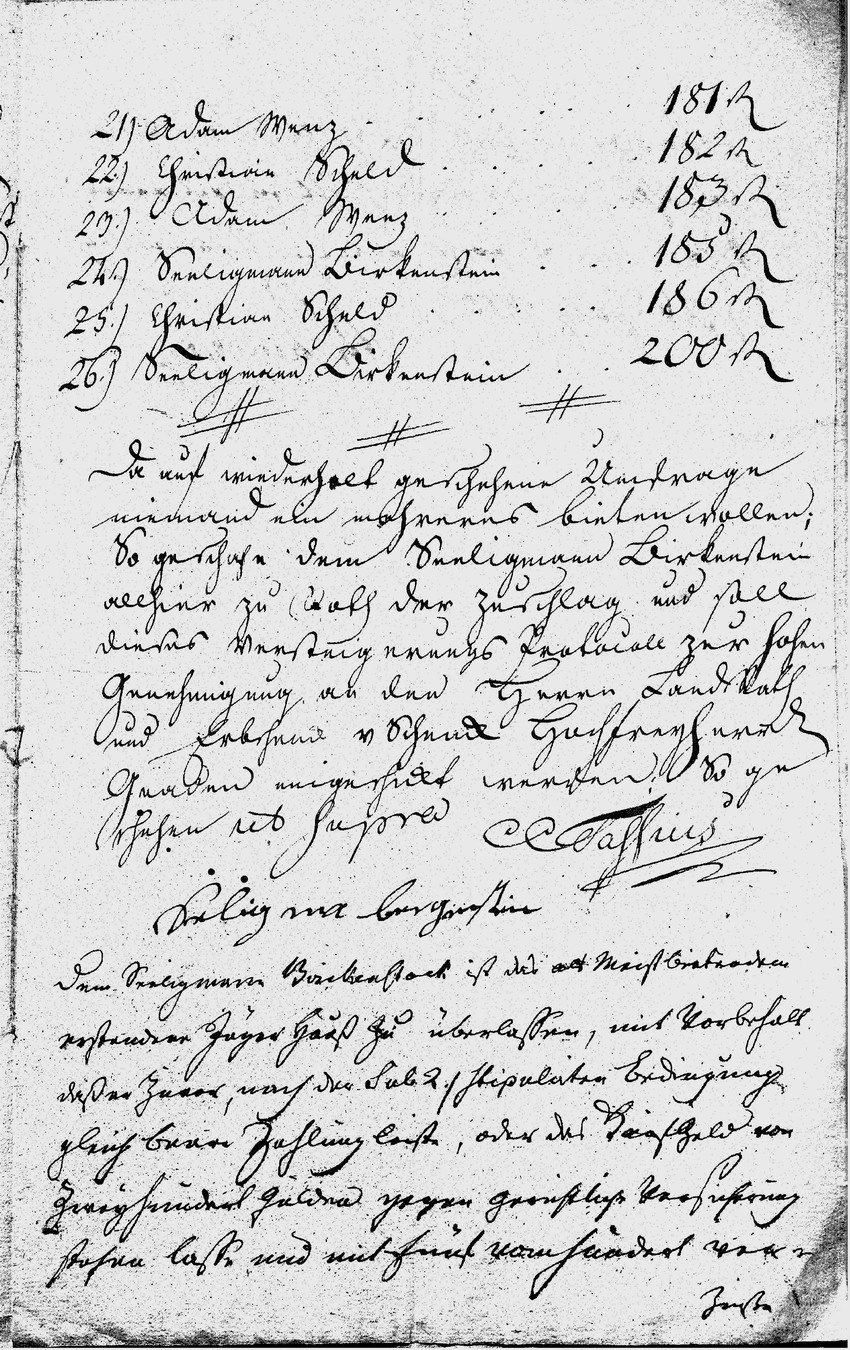 21) Adam Wenz . . . . 181 fl
22.) Christian Scheld . . . . 182 fl
23.) Adam Wenz . . . . 183 fl
24.) Seeligmann Birkenstein . . . 185 fl
25.) Christian Scheld . . . . 186 fl
26.) Seeligmann Birkenstein . . 200 fl
Da auf wiederholt geschehene Umfrage
niemand ein mehreres bieten wollen;
So geschahe dem Seeligmann Birkenstein
allhier zu Roth der Zuschlag und soll
dieses Versteigerungs Protocoll zur hohen
Genehmigung an den Herrn Landrath
und Erbschenk v Schenk Hochfreyherrl
Gnaden eingeschickt werden. So ge
schehen ut supra CC Tassius
Selig ma bergenstin
Dem Seeligmann Birckenstock ist das als Meistbietendem
erstandene Jäger Hauß zu überlassen, mit Vorbehalt
daß er zuvor, nach der Sub 2.) stipulirten Bedingung
gleich baare Zahlung leiste, oder das Kaufgeld von
Zweyhundert Gulden gegen gerichtliche Versicherung
stehen lasse und mit fünf vom hundert ver